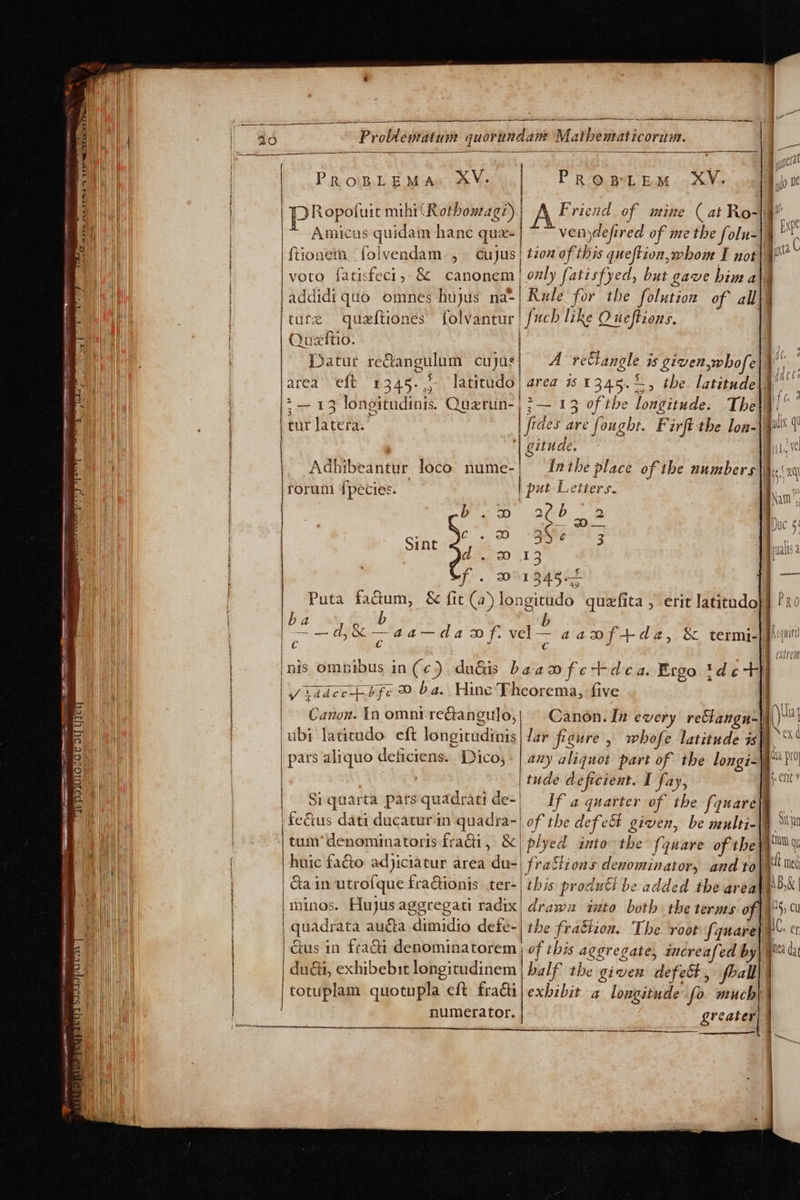 40 Problematum quorundam Mathematicorum.
PROBLEMA XV.
PRopoſuit mihi (Rothomagi)
Amicus quidam hanc quæ-
ſtionem ſolvendam , cujus
voto ſatisfeci, & canonem
addidi quo omnes hujus na-
turæ quæſtiones ſolvantur
Quæſtio.
Datur rectangulum cujus
area eſt 1345. latitudo
— 13 longitudinis. Quærun-
tur latera.
Adhibeantur loco nume-
rorum ſpecies.
PROBLEM XV.
A Friend of mine (at Ro-
ven) deſired of me the ſolu-
tion of this queſtion, whom I not
only ſatisfyed, but gave him a
Rule for the ſolution of all
ſuch like Queſtions.
A rectangle is given, whoſe
area is 1345. , the latitude
— 13 of the longitude. The
ſides are ſought. Firſt the lon-
gitude.
In the place of the numbers
put Letters.
Sint
Puta factum, & ſit (a) longitudo quæſita , erit latitudo
ba/c — d, & b/c aa — da ∞ f. vel b/c aa ∞ f + da, & termi-
nis omnibus in (c) ductis baa ∞ fc + dca. Ergo ½dc +
√ ¼ddcc + bfc ∞ ba. Hinc Theorema, ſive
Canon. In omni rectangulo,
ubi latitudo eſt longitudinis
pars aliquo deficiens. Dico,
Si quarta pars quadrati de-
fectus dati ducatur in quadra-
tum denominatoris fracti, &
huic facto adjiciatur area du-
cta in utroſque fractionis ter-
minos. Hujus aggregati radix
quadrata aucta dimidio defe-
ctus in fracti denominatorem
ducti, exhibebit longitudinem
totuplam quotupla eſt fracti
numerator.
Canon. In every rectangu-
lar figure , whoſe latitude is
any aliquot part of the longi-
tude deficient. I ſay,
If a quarter of the ſquare
of the defect given, be multi-
plyed into the ſquare of the
fractions denominator, and to
this product be added the area
drawn into both the terms of
the fraction. The root ſquare
of this aggregate, increaſed by
half the given defect, ſhall
exhibit a longitude ſo much
greater